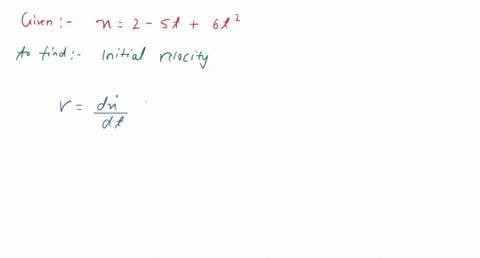 Given :- x = 2 - 5t + 6t²
to find :- Initial velocity
v = dx/dt